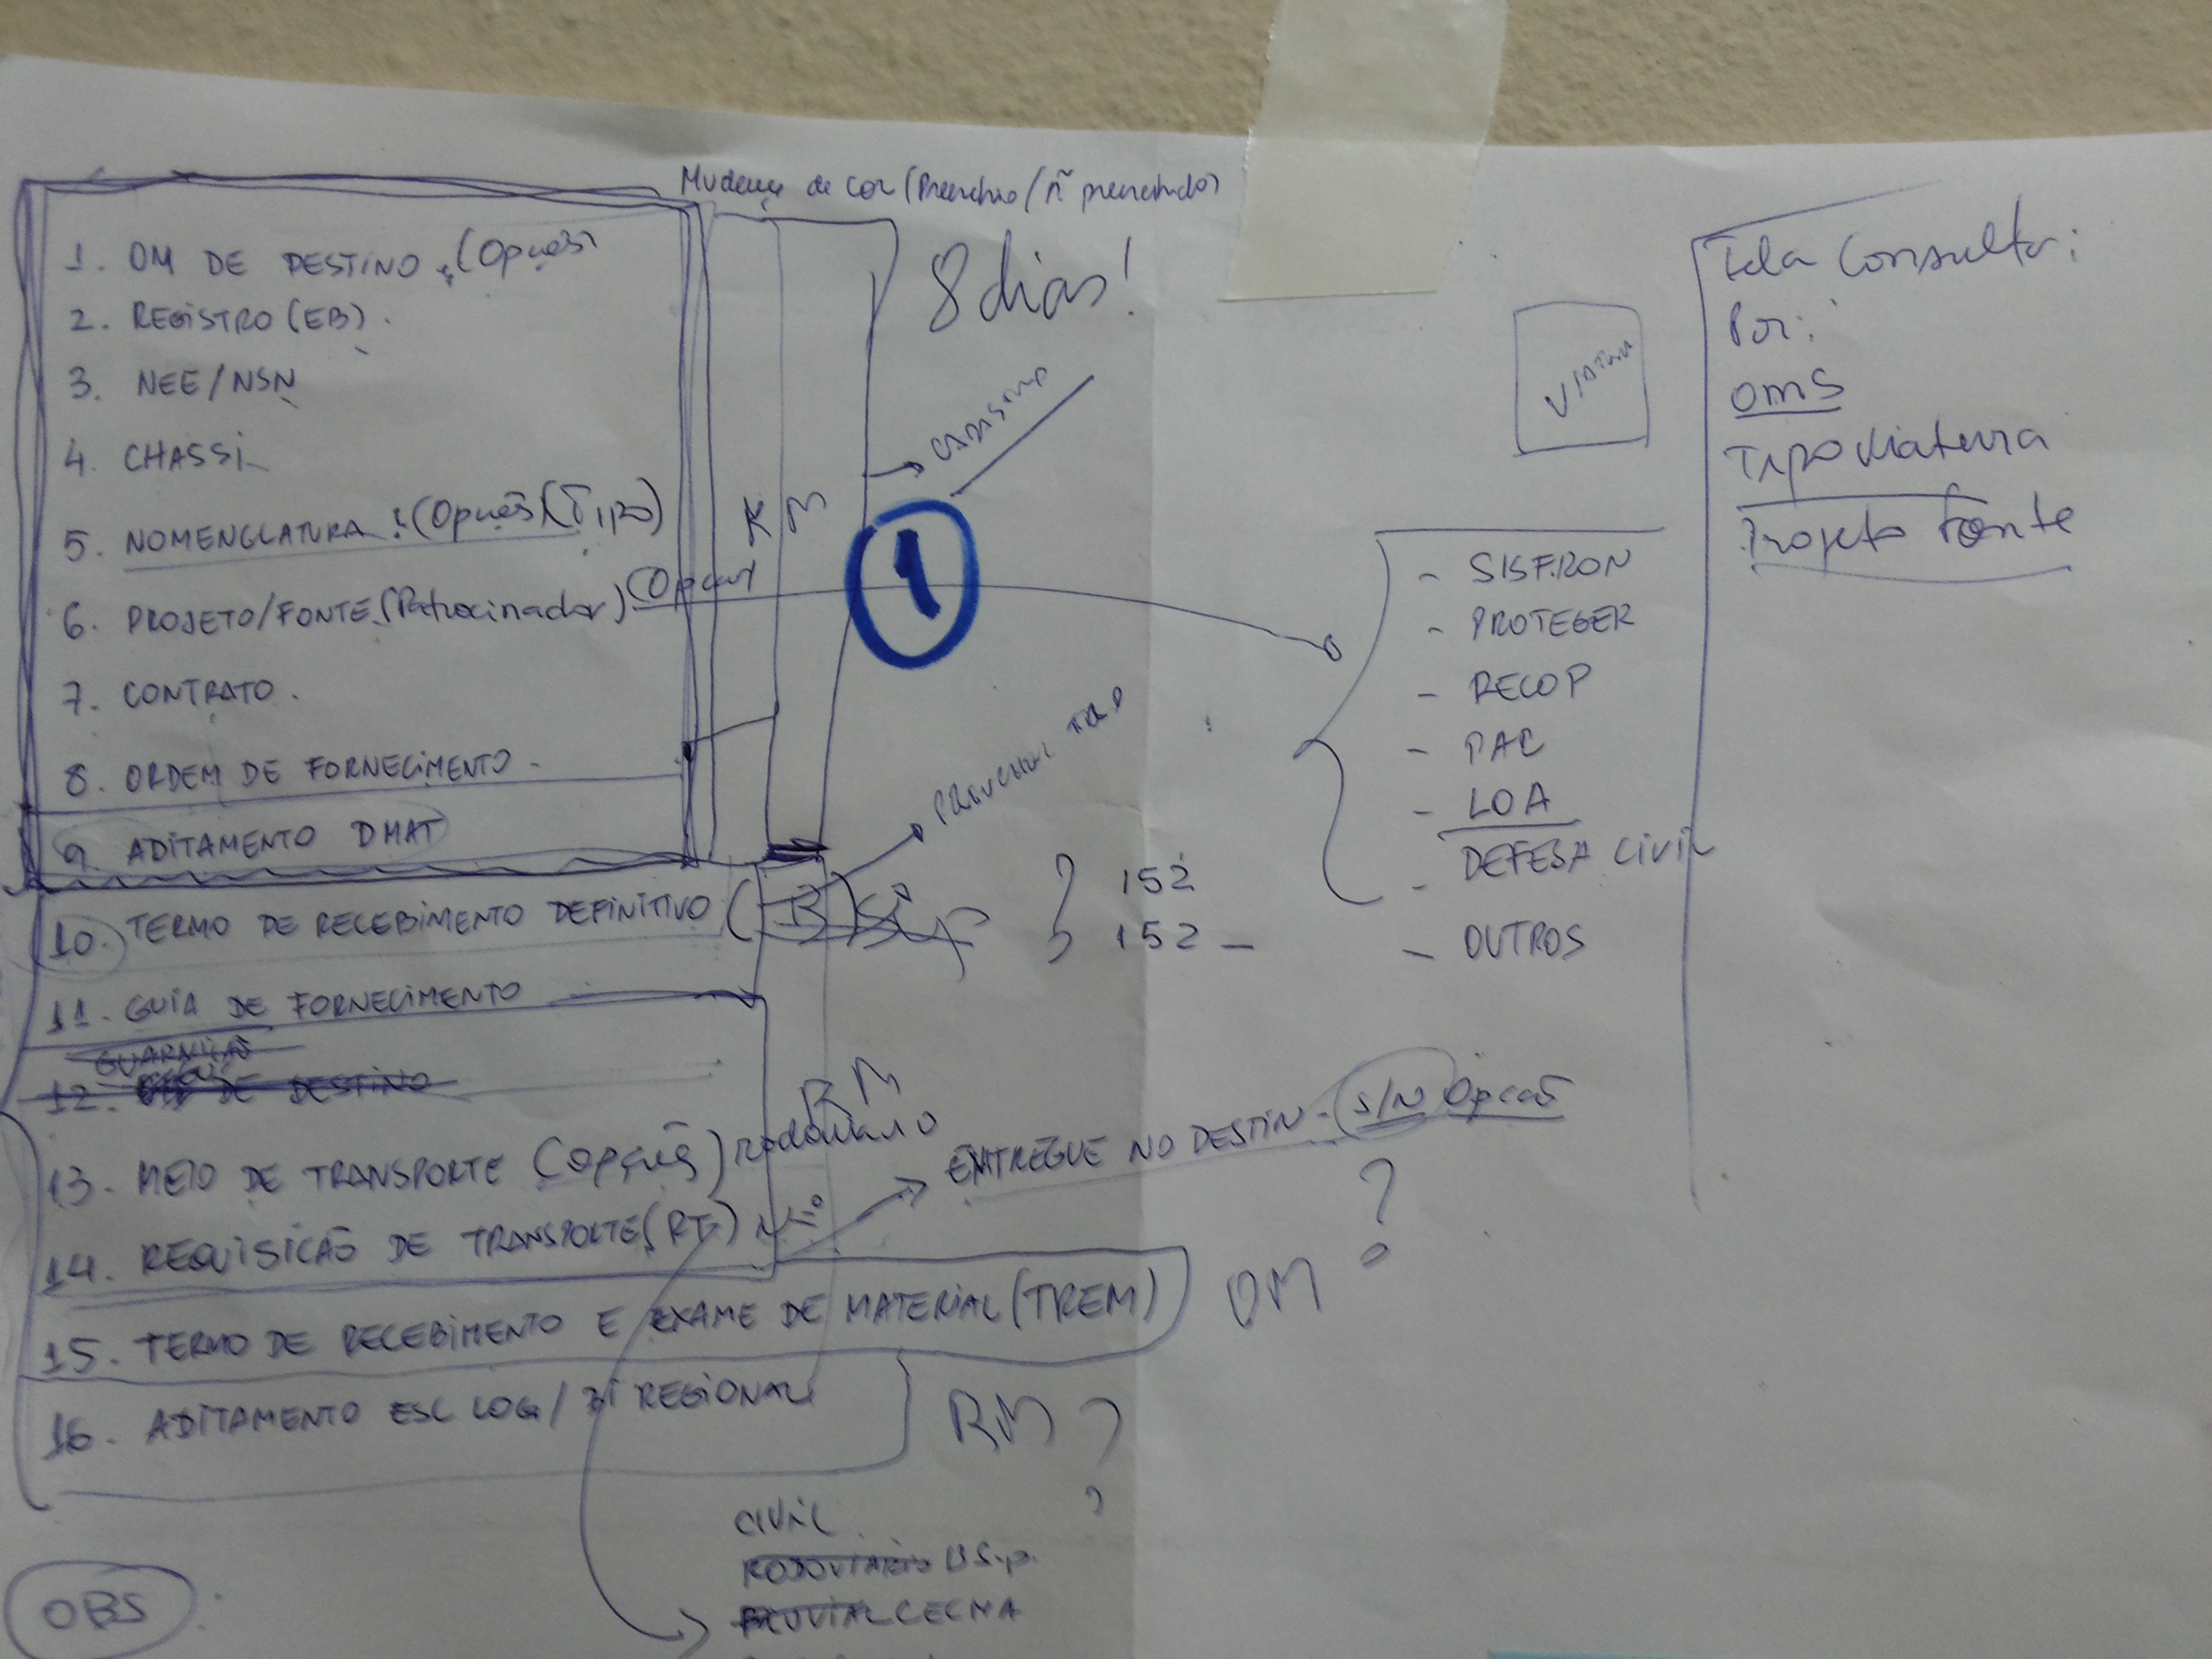 Mudança de cor (Preenchido/ñ preenchido)
1. OM DE DESTINO (Opção)
2. REGISTRO (EB).
3. NEE/NSN
4. CHASSI
5. NOMENCLATURA (Opção) (Tipo)
6. PROJETO/FONTE (Patrocinador) (Opção)
7. CONTRATO.
8. ORDEM DE FORNECIMENTO
9. ADITAMENTO DMAT
10. TERMO DE RECEBIMENTO DEFINITIVO (B)
11. GUIA DE FORNECIMENTO
GUARNIÇÃO
12. DE DESTINO
13. MEIO DE TRANSPORTE (Opção) rodoviário
14. REQUISICÃO DE TRANSPORTE (RT) Nº
15. TERMO DE RECEBIMENTO E EXAME DE MATERIAL (TREM)
16. ADITAMENTO ESC LOG/BI REGIONAL
OBS:
8 dias!
1
152
152
RM
ENTREGUE NO DESTIN - S/N Opcão
?
OM
RM ?
?
CIVIL
RODOVIARIO BSup.
FLUVIAL CECMA
VIATURA
- SISFRON
- PROTEGER
- RECOP
- PAC
- LOA
- DEFESA CIVIL
- OUTROS
Tela Consulta:
Por:
OMS
Tipo Viatura
Projeto Fonte